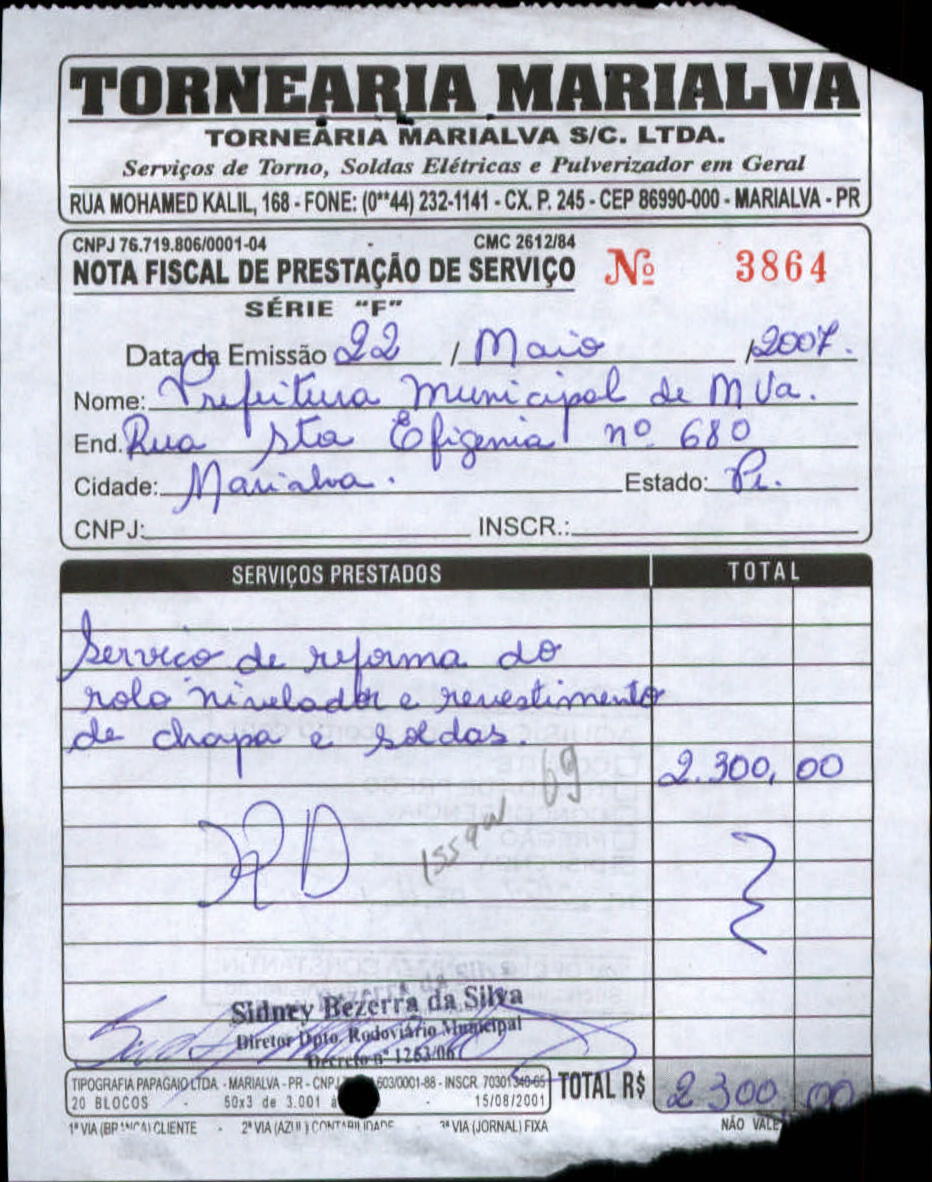 TORNEARIA MARIALVA
TORNEARIA MARIALVA S/C. LTDA.
Serviços de Torno, Soldas Elétricas e Pulverizador em Geral
RUA MOHAMED KALIL, 168 - FONE: (0**44) 232-1141 - CX. P. 245 - CEP 86990-000 - MARIALVA - PR
CNPJ 76.719.806/0001-04 CMC 2612/84
NOTA FISCAL DE PRESTAÇÃO DE SERVIÇO Nº 3864
SÉRIE "F"
Data da Emissão 22 / Maio / 2007.
Nome: Prefeitura Municipal de MVa.
End. Rua Sta Efigenia nº 680
Cidade: Marialva. Estado: Pr.
CNPJ: INSCR.:
SERVIÇOS PRESTADOS TOTAL
Serviço de reforma do
rolo nivelador e revestimento
de chapa e soldas.
2.300,00
69
Sidney Bezerra da Silva
Diretor Dpto. Rodoviário Municipal
Decreto nº 1263/06
TIPOGRAFIA PAPAGAIO LTDA. - MARIALVA - PR - CNPJ 603/0001-88 - INSCR. 70301340-65
20 BLOCOS - 50x3 de 3.001 à 15/08/2001
TOTAL R$ 2300 00
1ª VIA (BRANCA) CLIENTE - 2ª VIA (AZUL) CONTABILIDADE - 3ª VIA (JORNAL) FIXA NÃO VALE